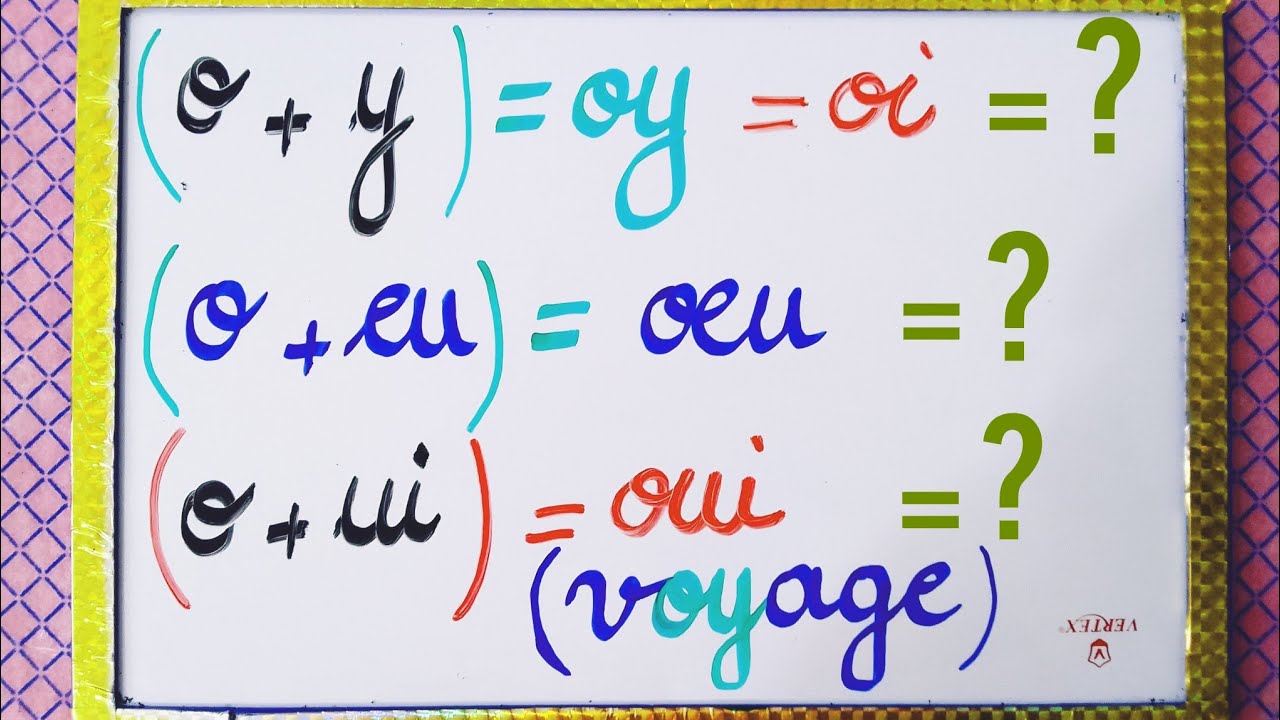 (o + y) = oy = oi = ?
(o + eu) = oeu = ?
(o + ui) = oui = ?
(voyage)
VERTEX